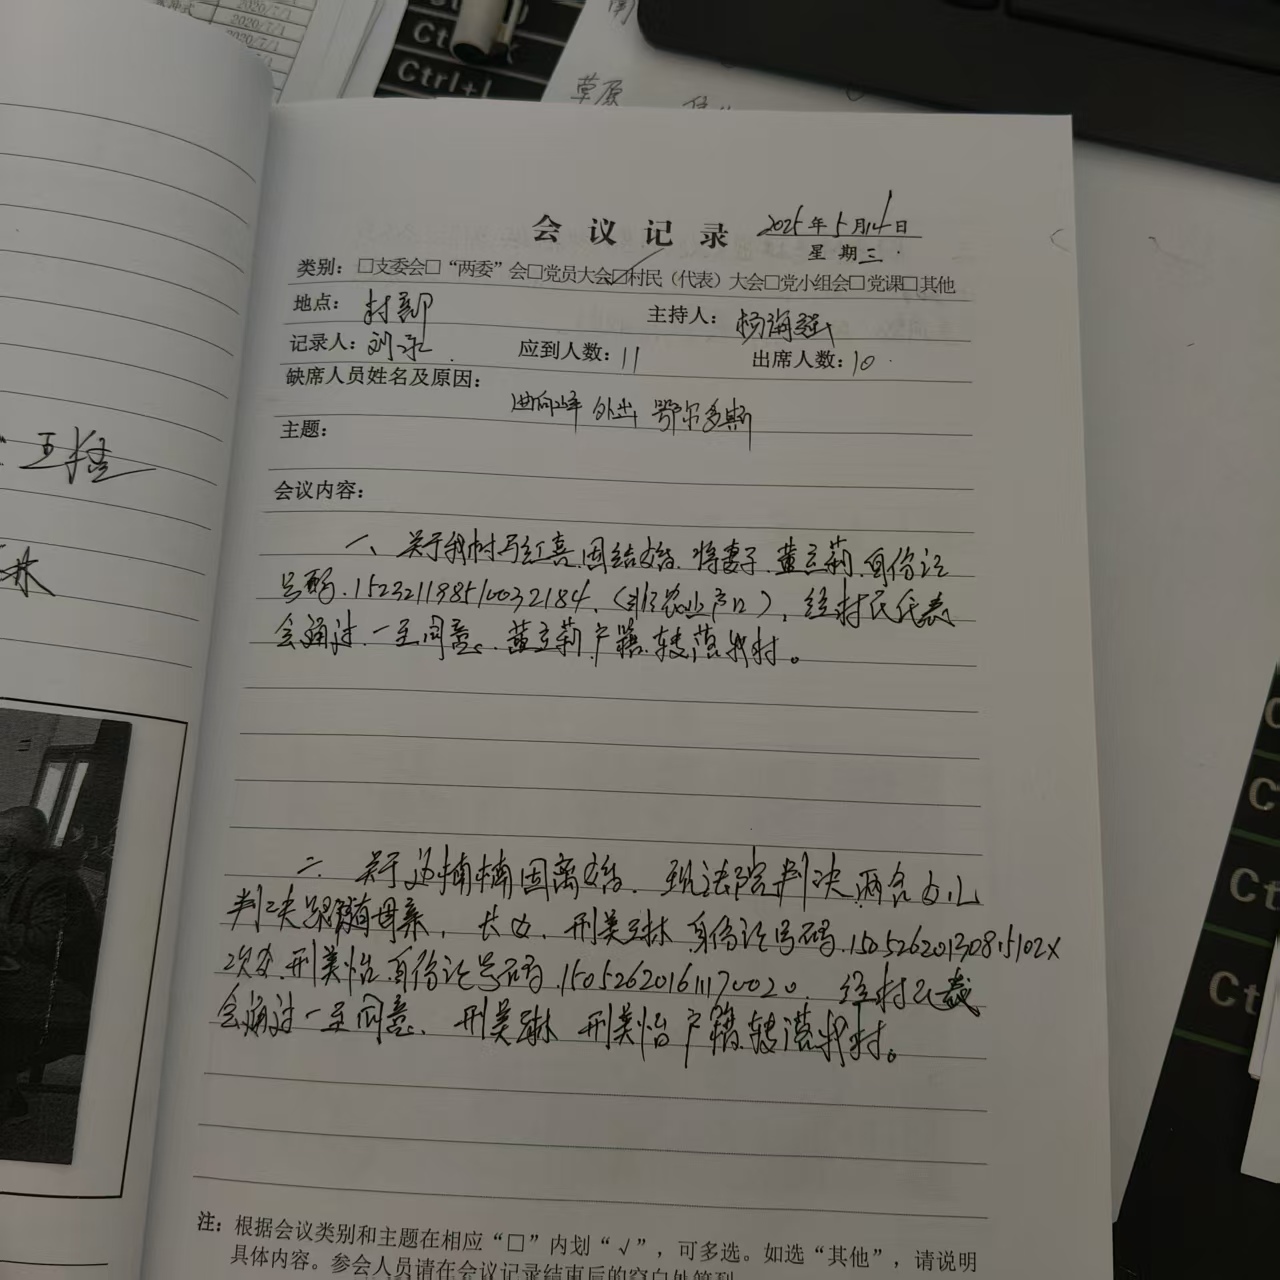 2020/7/1
2020/7/1
2020/7/1
Ctrl+L
草原
会议记录 2025年5月14日
星期三
类别：□支委会□“两委”会□党员大会☑村民（代表）大会□党小组会□党课□其他
地点：村部 主持人：杨海
记录人：刘 应到人数：11 出席人数：10
缺席人员姓名及原因：
外出 鄂尔多斯
主题：
会议内容：
一、关于我村马红喜因结婚，将妻子黄立莉，身份证
号码152321198510032184，（非农业户口），经村民代表
会通过一至同意，黄立莉户籍转落我村。
二、关于 楠楠因离婚，现法院判决两名女儿
判决跟随母亲，长女，刑美琳身份证号码
次女，刑美怡，身份证号码150526201611170020，经村民代表
会通过一至同意，刑美琳 刑美怡户籍转落我村。
注：根据会议类别和主题在相应“□”内划“√”，可多选。如选“其他”，请说明
具体内容。参会人员请在会议记录结束后的空白处签到